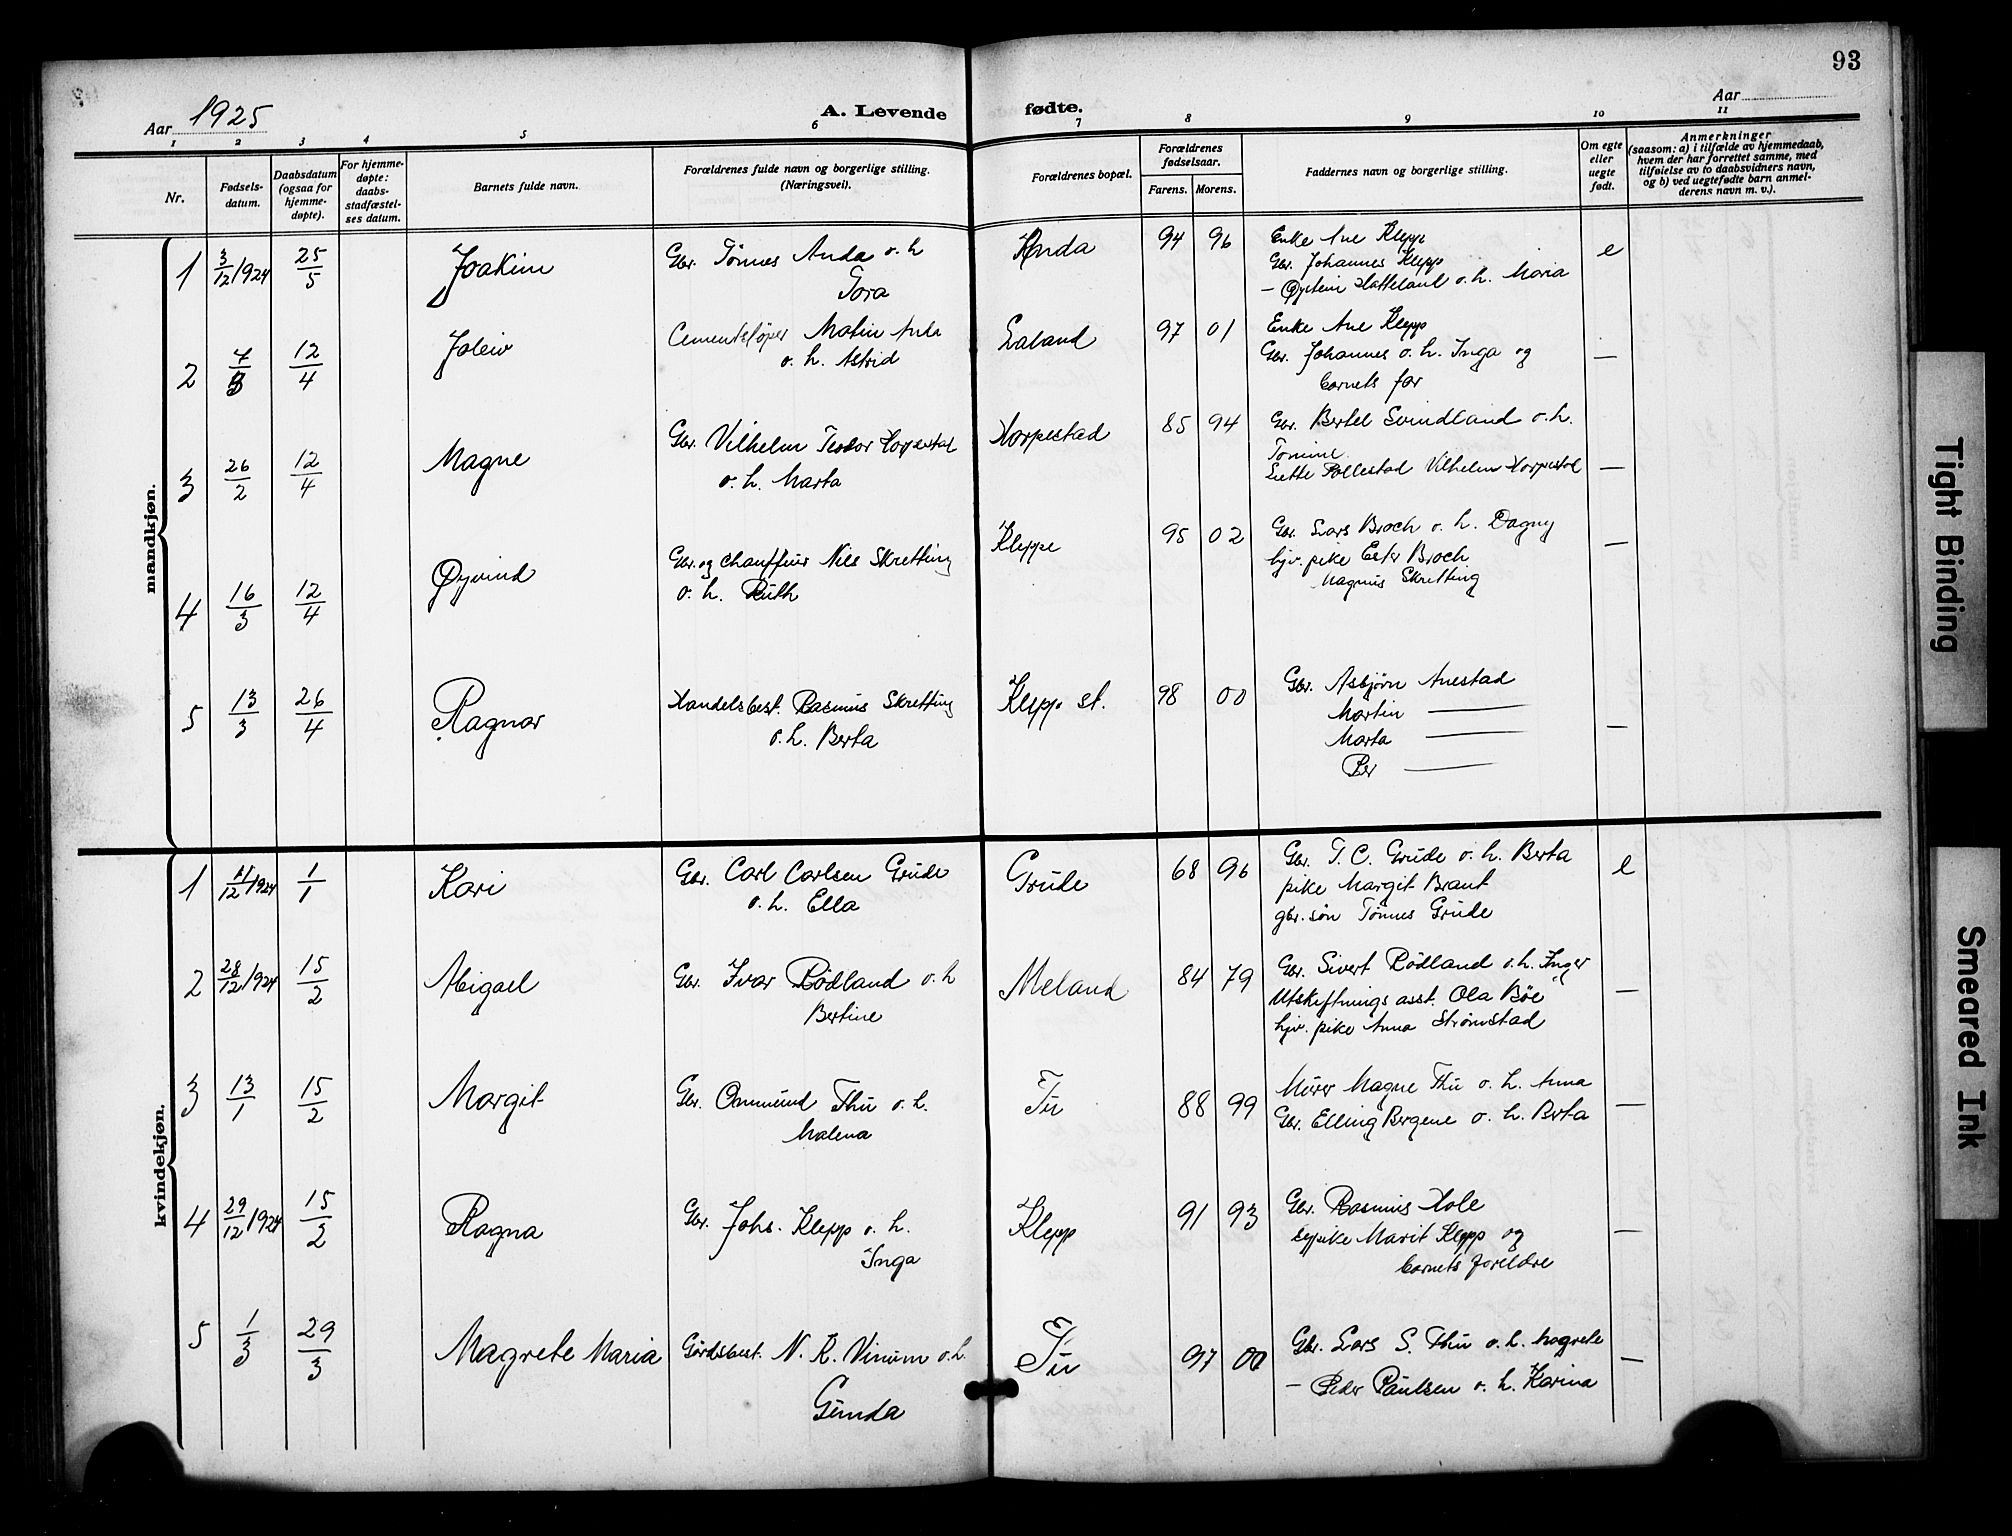 93
Aar 1925
A. Levende fødte.
Aar
1 2 3 4 5 6 7 8 9 10 11
Nr.
Fødsels-
datum.
Daabsdatum
(ogsaa for
hjemme-
døpte).
For hjemme-
døpte:
daabs-
stadfæstel-
ses datum.
Barnets fulde navn.
Forældrenes fulde navn og borgerlige stilling.
(Næringsvei).
Forældrenes bopæl.
Forældrenes
fødselsaar.
Farens. Morens.
Faddernes navn og borgerlige stilling.
Om egte
eller
uegte
født.
Anmerkninger
(saasom: a) i tilfælde av hjemmedaab,
hvem der har forrettet samme, med
tilføielse av to daabsvidners navn,
og b) ved uegtefødte barn anmel-
derens navn m. v.).
mandkjøn.
1 3/12 1924 25/5 Joakim Gbr. Tønnes Anda o. h. Anda 94 96 Enke Ane Klepp e
Tora
Gbr. Johannes Klepp
— Øystein Hatteland o. h. Maria
2 12/4 Cementstøper Anda Laland 97 01 Enke Ane Klepp —
o. h. Astrid
Gbr. Johannes o. h. Inga og
barnets far
3 26/2 12/4 Magne Gbr. Vilhelm Teodor Horpestad Horpestad 85 94 Gbr. Bertel Svindland o. h. —
o. h. Marta
Tomine
Pollestad Vilhelm Horpestad
4 16/3 12/4 Øyvind Gbr. og chauffeur Nils Skretting Kleppe 95 02 Gbr. Lars Broch o. h. Dagny —
o. h. Ruth
hjv. pike Ester Broch
Magnus Skretting
5 13/3 26/4 Ragnar Handelsbest. Rasmus Skretting Klepp st. 98 00 Gbr. Asbjørn Anestad —
o. h. Berta
Martin —
Marta —
Per —
kvindekjøn.
1 11/12 1924 1/1 Kari Gbr. Carl Carlsen Grude Grude 68 96 Gbr. T. C. Grude o. h. Berta e
o. h. Ella
pike Margit Braut
gbr. søn Tønnes Grude
2 28/12 1924 15/2 Abigael Gbr. Ivar Rødland o. h. Meland 84 79 Gbr. Sivert Rødland o. h. Inger —
Bertine
Utskiftnings asst. Ola Bøe
hjv. pike Anna Strømstad
3 13/1 15/2 Margit Gbr. Ommund Thu o. h. Tu 88 99 Murer Magne Thu o. h. Anna —
Malena
Gbr. Elling Bergene o. h. Berta
4 29/12 1924 15/2 Ragna Gbr. Johs. Klepp o. h. Klepp 91 93 Gbr. Rasmus Hole —
Inga
sypike Marit Klepp og
barnets foreldre
5 1/3 29/3 Magrete Maria Gårdsbest. N. K. Vinum o. h. Tu 97 00 Gbr. Lars S. Thu o. h. Magrete —
Gunda
— Peder Paulsen o. h. Karina
Tight Binding
Smeared Ink